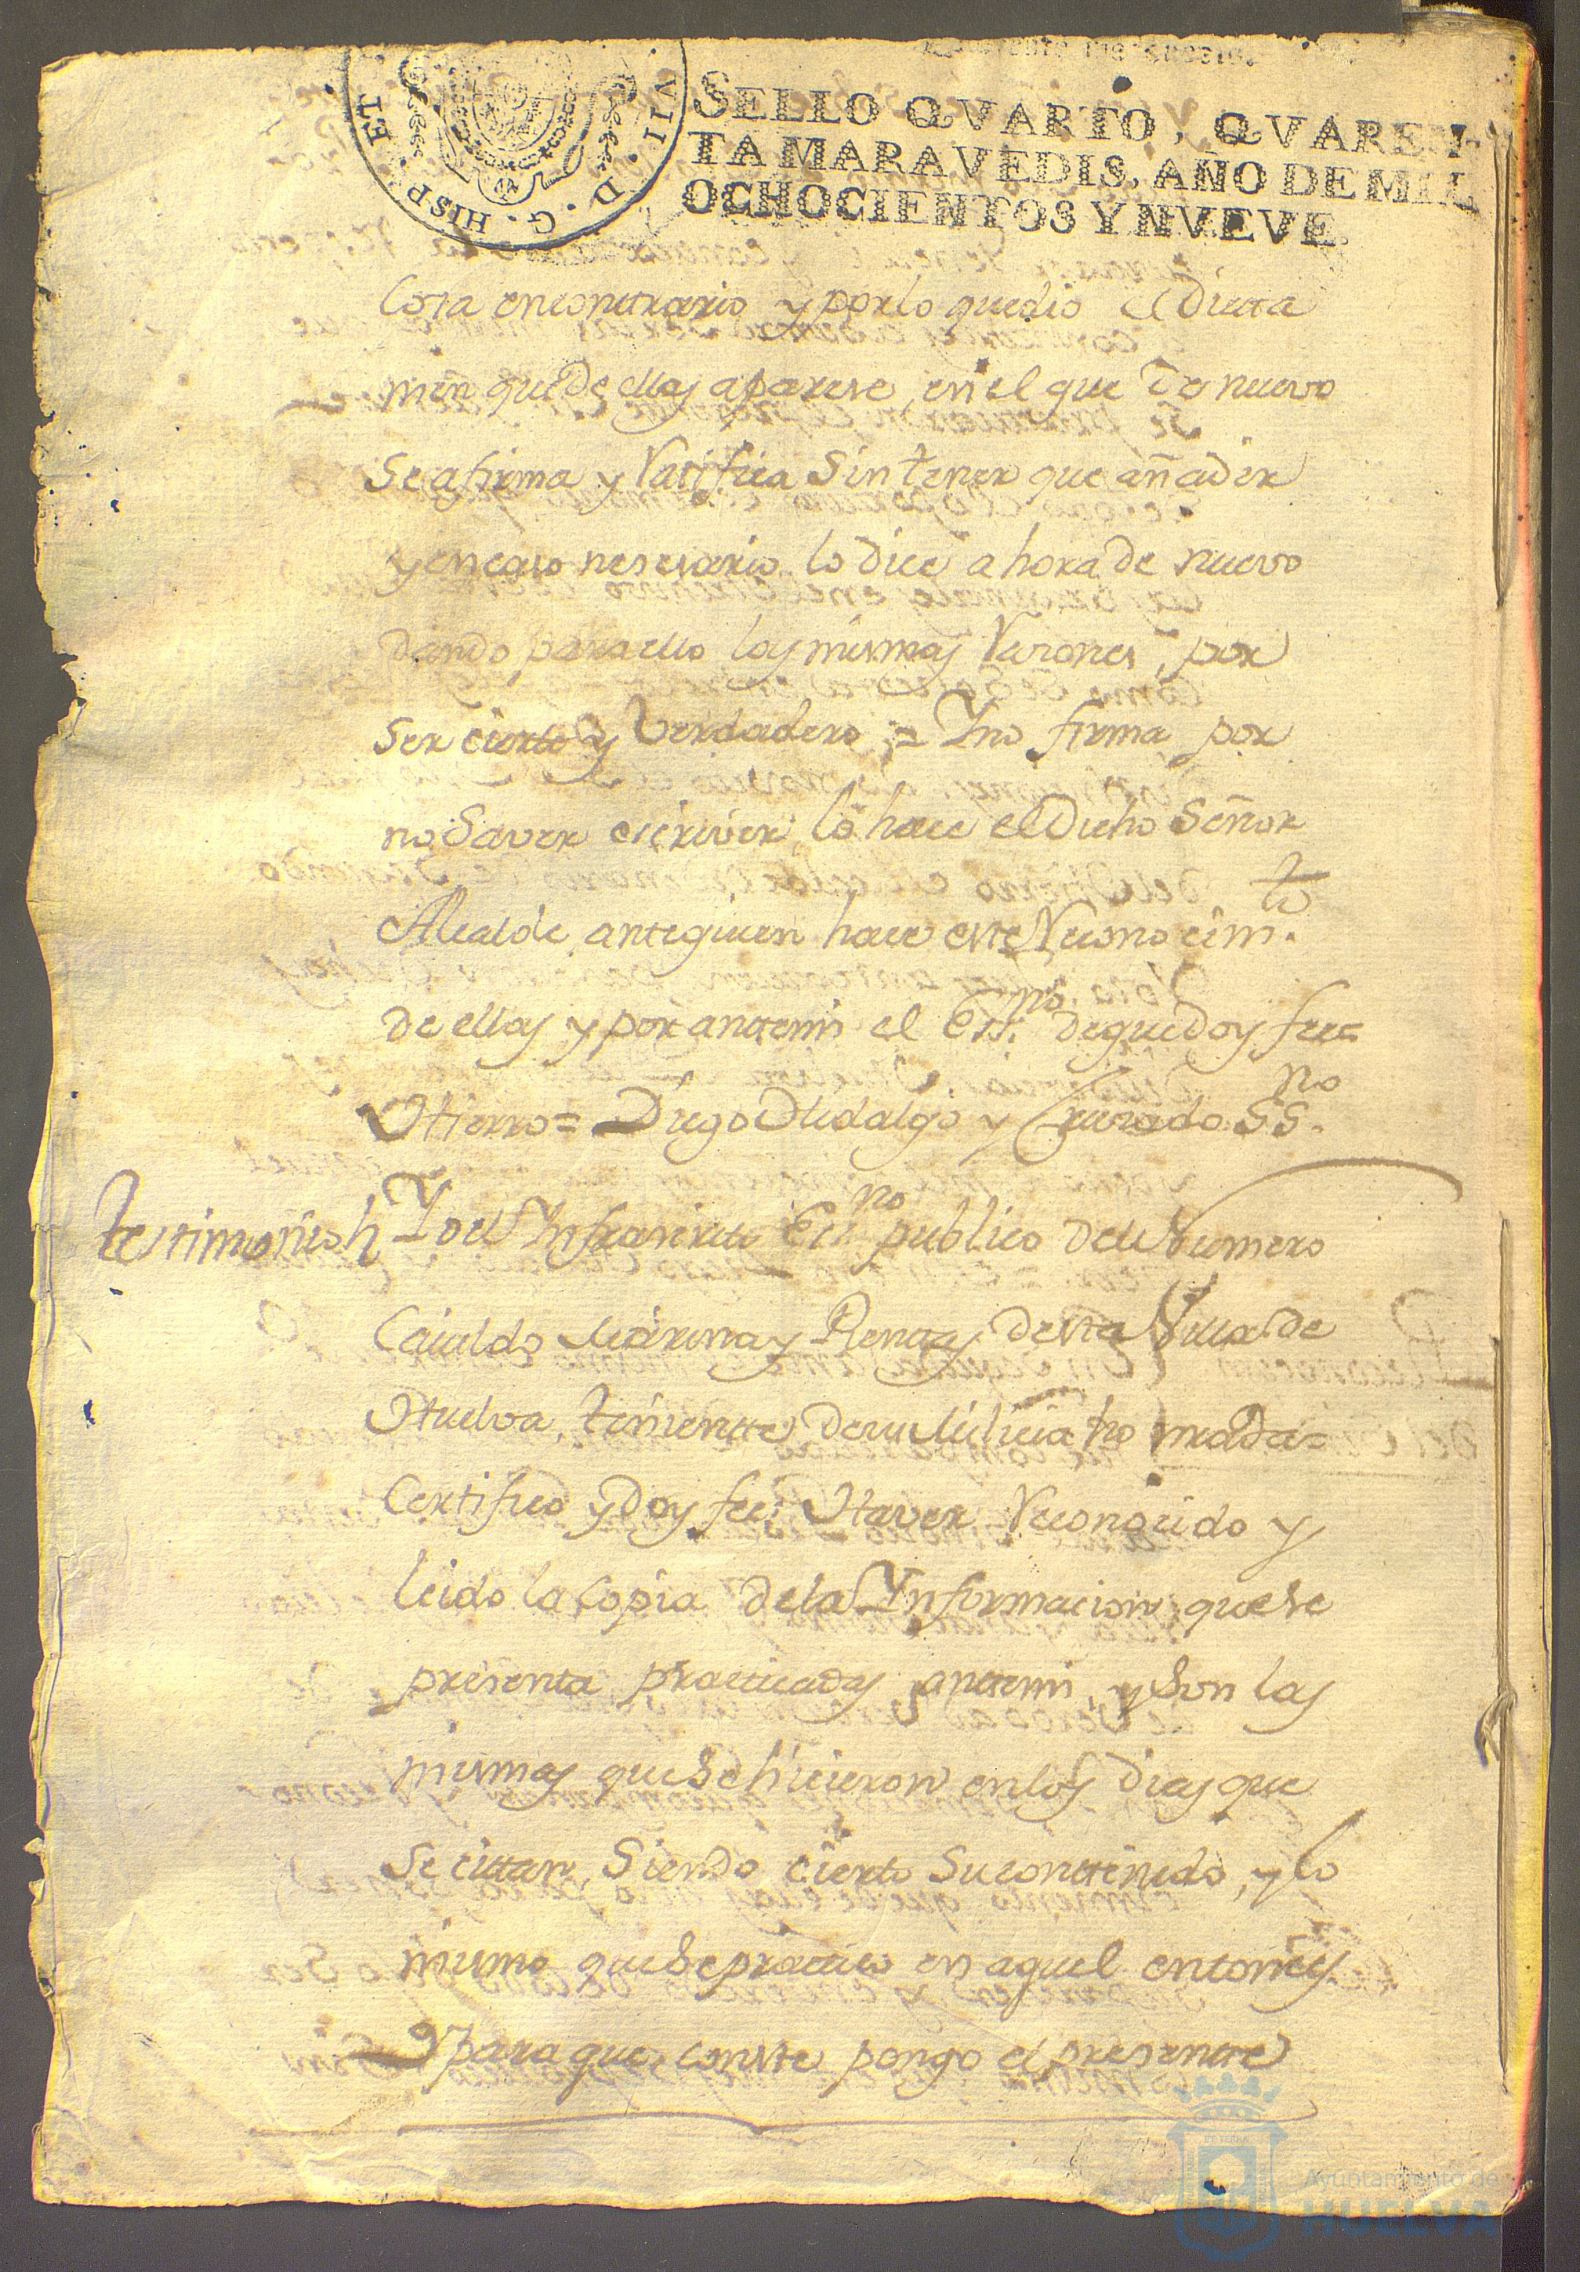 Quarenta maravedis.
VII · D · G · HISP · ET
SELLO QVARTO, QVAREN-
TA MARAVEDIS, AÑO DE MIL
OCHOCIENTOS Y NVEVE.
Cosa encontrario y porlo quedio el Dicta
men que de ellas aparese, en el que de nuevo
Se afirma y Ratifica Sin tener que añadir
y en caso nesesario lo dice ahora de nuevo
dando para ello las mismas Rarones, por
Ser cierto y Verdadero = Y no firma por
no Saver escriver, lo hace el Dicho Señor
Alcalde, antequien hace este Reconocim.to
de ellas y por antemi el Ess.no dequedoy fee=
Hierro= Diego Hidalgo y Quirado SS.no
testimonio Yo el Infrascrito Ess.no publico del Numero
Cavildo Marina y Rentas desta Villa de
Huelva, teniente de su Milicia honrrada=
Certifico y Doy fee: Haver Reconocido y
leido la Copia dela Ynformacion que se
presenta practicadas antemi, y Son las
mismas que Se hicieron en los dias que
Se cittan, Siendo cierto Su conttenido, y lo
mismo que Se practico en aquel entonces.
Y para que conste pongo el presentte
Ayuntamiento de
HUELVA